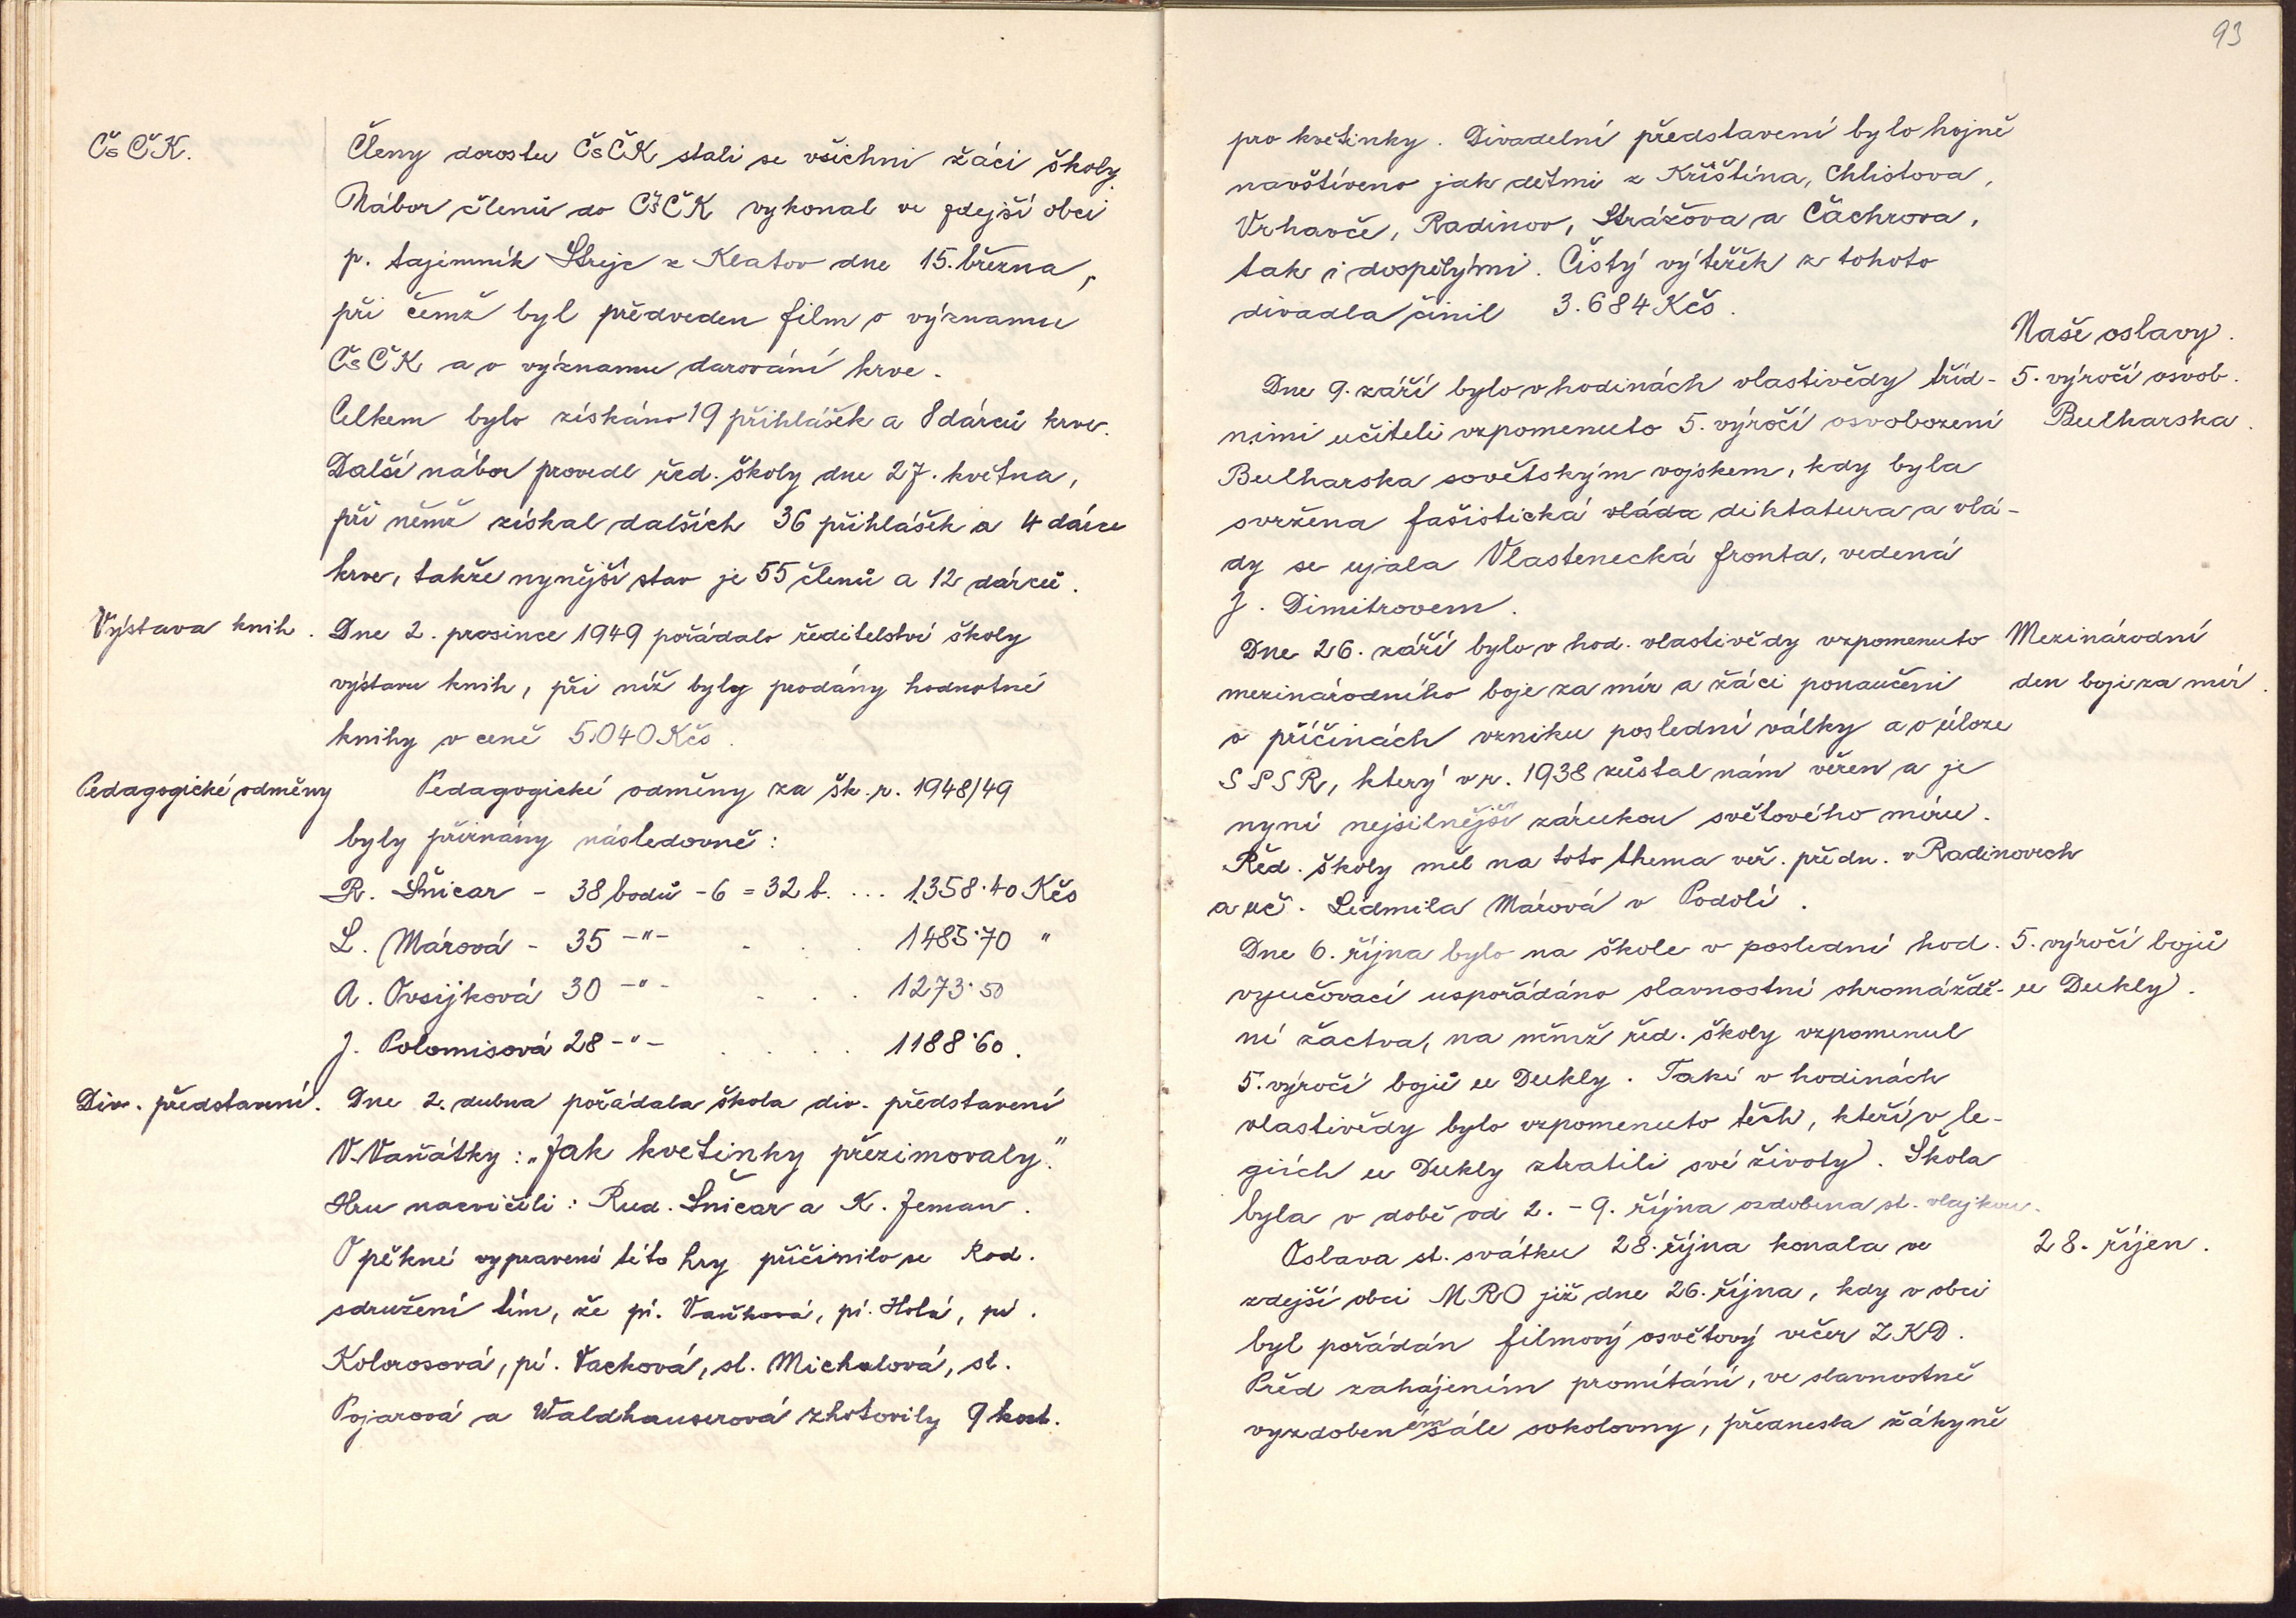 93
ČsČK.
Členy dorostu ČsČK stali se všichni žáci školy.
Nábor členů do ČsČK vykonal ve zdejší obci
p. tajemník Strejc z Klatov dne 15. března,
při čemž byl předveden film o významu
ČsČK a o významu darování krve.
Celkem bylo získáno 19 přihlášek a 8 dárců krve.
Další nábor provedl řed. školy dne 27. května,
při němž získal dalších 36 přihlášek a 4 dárce
krve, takže nynější stav je 55 členů a 12 dárců.
Výstava knih.
Dne 2. prosince 1949 pořádalo ředitelství školy
výstavu knih, při níž byly prodány hodnotné
knihy v ceně 5.040 Kčs.
Pedagogické odměny
Pedagogické odměny za šk. r. 1948/49
byly přiznány následovně:
R. Šnicar - 38 bodů - 6 = 32 b. ... 1.358·40 Kčs
L. Márová - 35 -"- . . . 1485·70 "
A. Ovsijková 30 -"- . . . 1273·50
J. Polomisová 28 -"- . . . . 1188·60.
Div. představení.
Dne 2. dubna pořádala škola div. představení
V. Vaňátky: „Jak květinky přezimovaly."
Hru nacvičili: Rud. Šnicar a K. Zeman.
O pěkné vypravení této hry přičinilo se Rod.
sdružení tím, že pí. Vaňková, pí. Holá, pí.
Kolorosová, pí. Vacková, sl. Michalová, sl.
Pojarová a Waldhauserová zhotovily 9 kost.
pro květinky. Divadelní představení bylo hojně
navštíveno jak dětmi z Křištína, Chlistova,
Vrhavče, Radinov, Strážova a Čachrova,
tak i dospělými. Čistý výtěžek z tohoto
divadla činil 3.684 Kčs.
Naše oslavy.
5. výročí osvob.
Bulharska.
Dne 9. září bylo v hodinách vlastivědy tříd-
nimi učiteli vzpomenuto 5. výročí osvobození
Bulharska sovětským vojskem, kdy byla
svržena fašistická vláda diktatura a vlá-
dy se ujala Vlastenecká fronta, vedená
J. Dimitrovem.
Mezinárodní
den boje za mír.
Dne 26. září bylo v hod. vlastivědy vzpomenuto
mezinárodního boje za mír a žáci ponaučeni
o příčinách vzniku poslední války a o úloze
SSSR, který v r. 1938 zůstal nám věren a je
nyní nejsilnější zárukou světového míru.
Řed. školy měl na toto thema veř. předn. v Radinovech
a uč. Ludmila Márová v Podolí.
5. výročí bojů
u Dukly.
Dne 6. října bylo na škole v poslední hod.
vyučovací uspořádáno slavnostní shromáždě-
ní žactva, na němž řed. školy vzpomenul
5. výročí bojů u Dukly. Také v hodinách
vlastivědy bylo vzpomenuto těch, kteří v le-
giích u Dukly ztratili své životy. Škola
byla v době od 2. - 9. října ozdobena st. vlajkou.
28. říjen.
Oslava st. svátku 28. října konala ve
zdejší obci MRO již dne 26. října, kdy v obci
byl pořádán filmový osvětový večer ZKD.
Před zahájením promítání, ve slavnostně
vyzdobeném sále sokolovny, přednesla žákyně